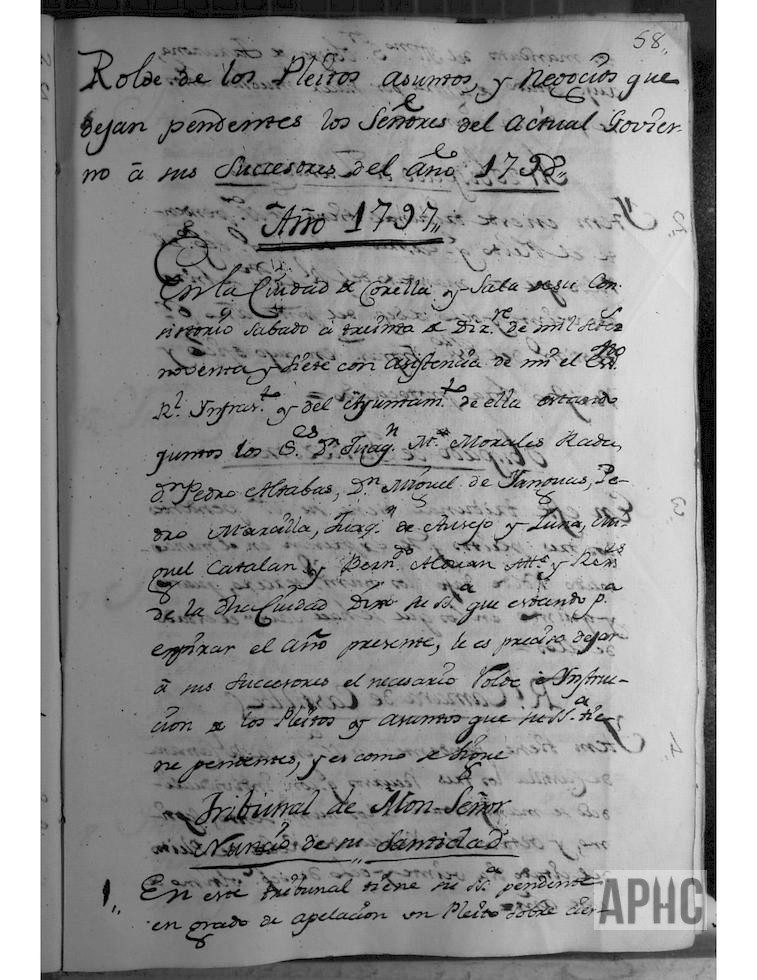 58,,
Rolde de los Pleitos asuntos, y negocios que
dejan pendentes los Señores del actual Govier-
no â sus Succesores del año 1798,,
Año 1797,,
En la Ciudad de Corella y Sala de su Con-
sistorio sabado â treinta de Diz.re de mil setez.s
noventa y siete con asistencia de mi el Ess.no
R.l Infras.to y del Ayuntam.to de ella estando
juntos los S.es D.n Juaq.n M.a Morales Rada,
D.n Pedro Alabas, D.n Miguel de Yanguas, Pe-
dro Marcilla, Juaq.n de Ausejo y Luna, Mi-
guel Catalan y Bern.do Alduan Alc.e y Rex.res
de la dha Ciudad Dixo su SS.a que estando p.a
espirar el año presente, le es preciso dejar
â sus Succesores el necesario Rolde e Instruc-
cion de los Pleitos y asuntos que su SS.a tie-
ne pendentes, y es como se sigue
Tribunal de Mon-Señor
Nuncio de su Santidad
1,, En este tribunal tiene su SS.a pendiente
en grado de apelacion un Pleito sobre cier-
2,,
3,,
4,,
APHC